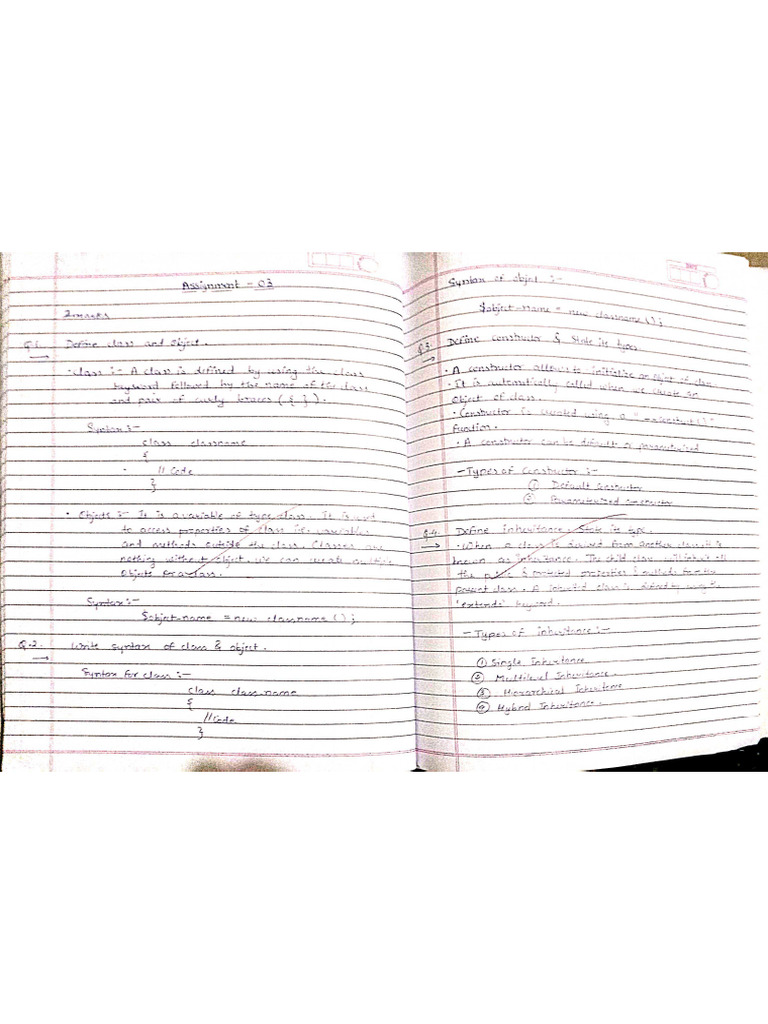 Assignment - 03
2 marks
Q.1. Define class and object.
• Class :- A class is defined by using the class
keyword followed by the name of the class
and pair of curly braces ( { } ).
Syntax :-
class classname
{
// Code
}
• Objects :- It is a variable of type class. It is used
to access properties of class i.e. variable
and methods outside the class. Classes are
nothing without object, we can create multiple
objects for a class.
Syntax :-
$object-name = new classname ( ) ;
Q.2. Write syntax of class & object.
Syntax for class :-
class class-name
{
// Code
}
Syntax of object :-
$object-name = new classname ( ) ;
Q.3. Define constructor & State its types
• A constructor allows to initialize an object of class.
• It is automatically called when we create an
object of class.
• Constructor is created using a "__construct()"
function.
• A constructor can be default or parameterized
- Types of Constructor :-
① Default Constructor
② Parameterized constructor
Q.4. Define Inheritance. State its type.
• When a class is derived from another class it is
known as inheritance. The child class will inherit all
the public & protected properties & methods from the
parent class. A inherited class is defined by using the
'extends' keyword.
- Types of inheritance :-
① Single Inheritance
② Multilevel Inheritance
③ Hierarchical Inheritance
④ Hybrid Inheritance.